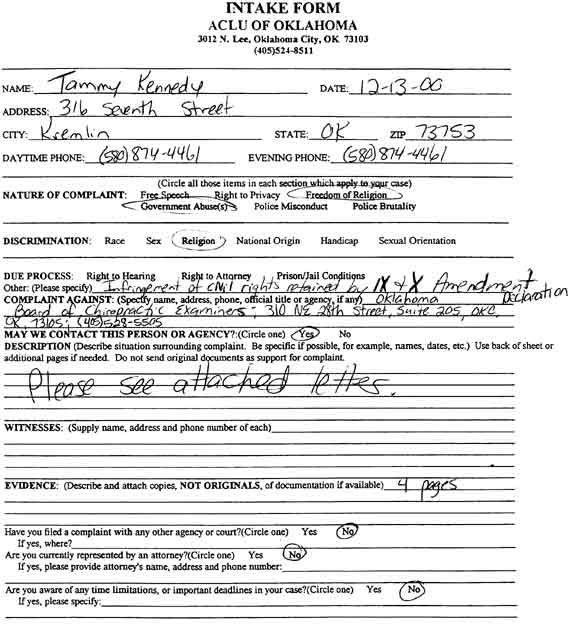 INTAKE FORM
ACLU OF OKLAHOMA
3012 N. Lee, Oklahoma City, OK 73103
(405)524-8511
NAME: Tammy Kennedy DATE: 12-13-00
ADDRESS: 316 Seventh Street
CITY: Kremlin STATE: OK ZIP 73753
DAYTIME PHONE: (580)874-4461 EVENING PHONE: (580)874-4461
(Circle all those items in each section which apply to your case)
NATURE OF COMPLAINT: Free Speech Right to Privacy Freedom of Religion
Government Abuse(s) Police Misconduct Police Brutality
DISCRIMINATION: Race Sex Religion National Origin Handicap Sexual Orientation
DUE PROCESS: Right to Hearing Right to Attorney Prison/Jail Conditions
Other: (Please specify) Infringement of civil rights retained by IX & X Amendment, Declaration
COMPLAINT AGAINST: (Specify name, address, phone, official title or agency, if any) Oklahoma
Board of Chiropractic Examiners; 310 NE 28th Street, Suite 205, OKC,
OK 73105; (405)528-5505
MAY WE CONTACT THIS PERSON OR AGENCY?:(Circle one) Yes No
DESCRIPTION (Describe situation surrounding complaint. Be specific if possible, for example, names, dates, etc.) Use back of sheet or
additional pages if needed. Do not send original documents as support for complaint.
Please see attached letter.
WITNESSES: (Supply name, address and phone number of each)
EVIDENCE: (Describe and attach copies, NOT ORIGINALS, of documentation if available) 4 pages
Have you filed a complaint with any other agency or court?(Circle one) Yes No
If yes, where?
Are you currently represented by an attorney?(Circle one) Yes No
If yes, please provide attorney's name, address and phone number:
Are you aware of any time limitations, or important deadlines in your case?(Circle one) Yes No
If yes, please specify: